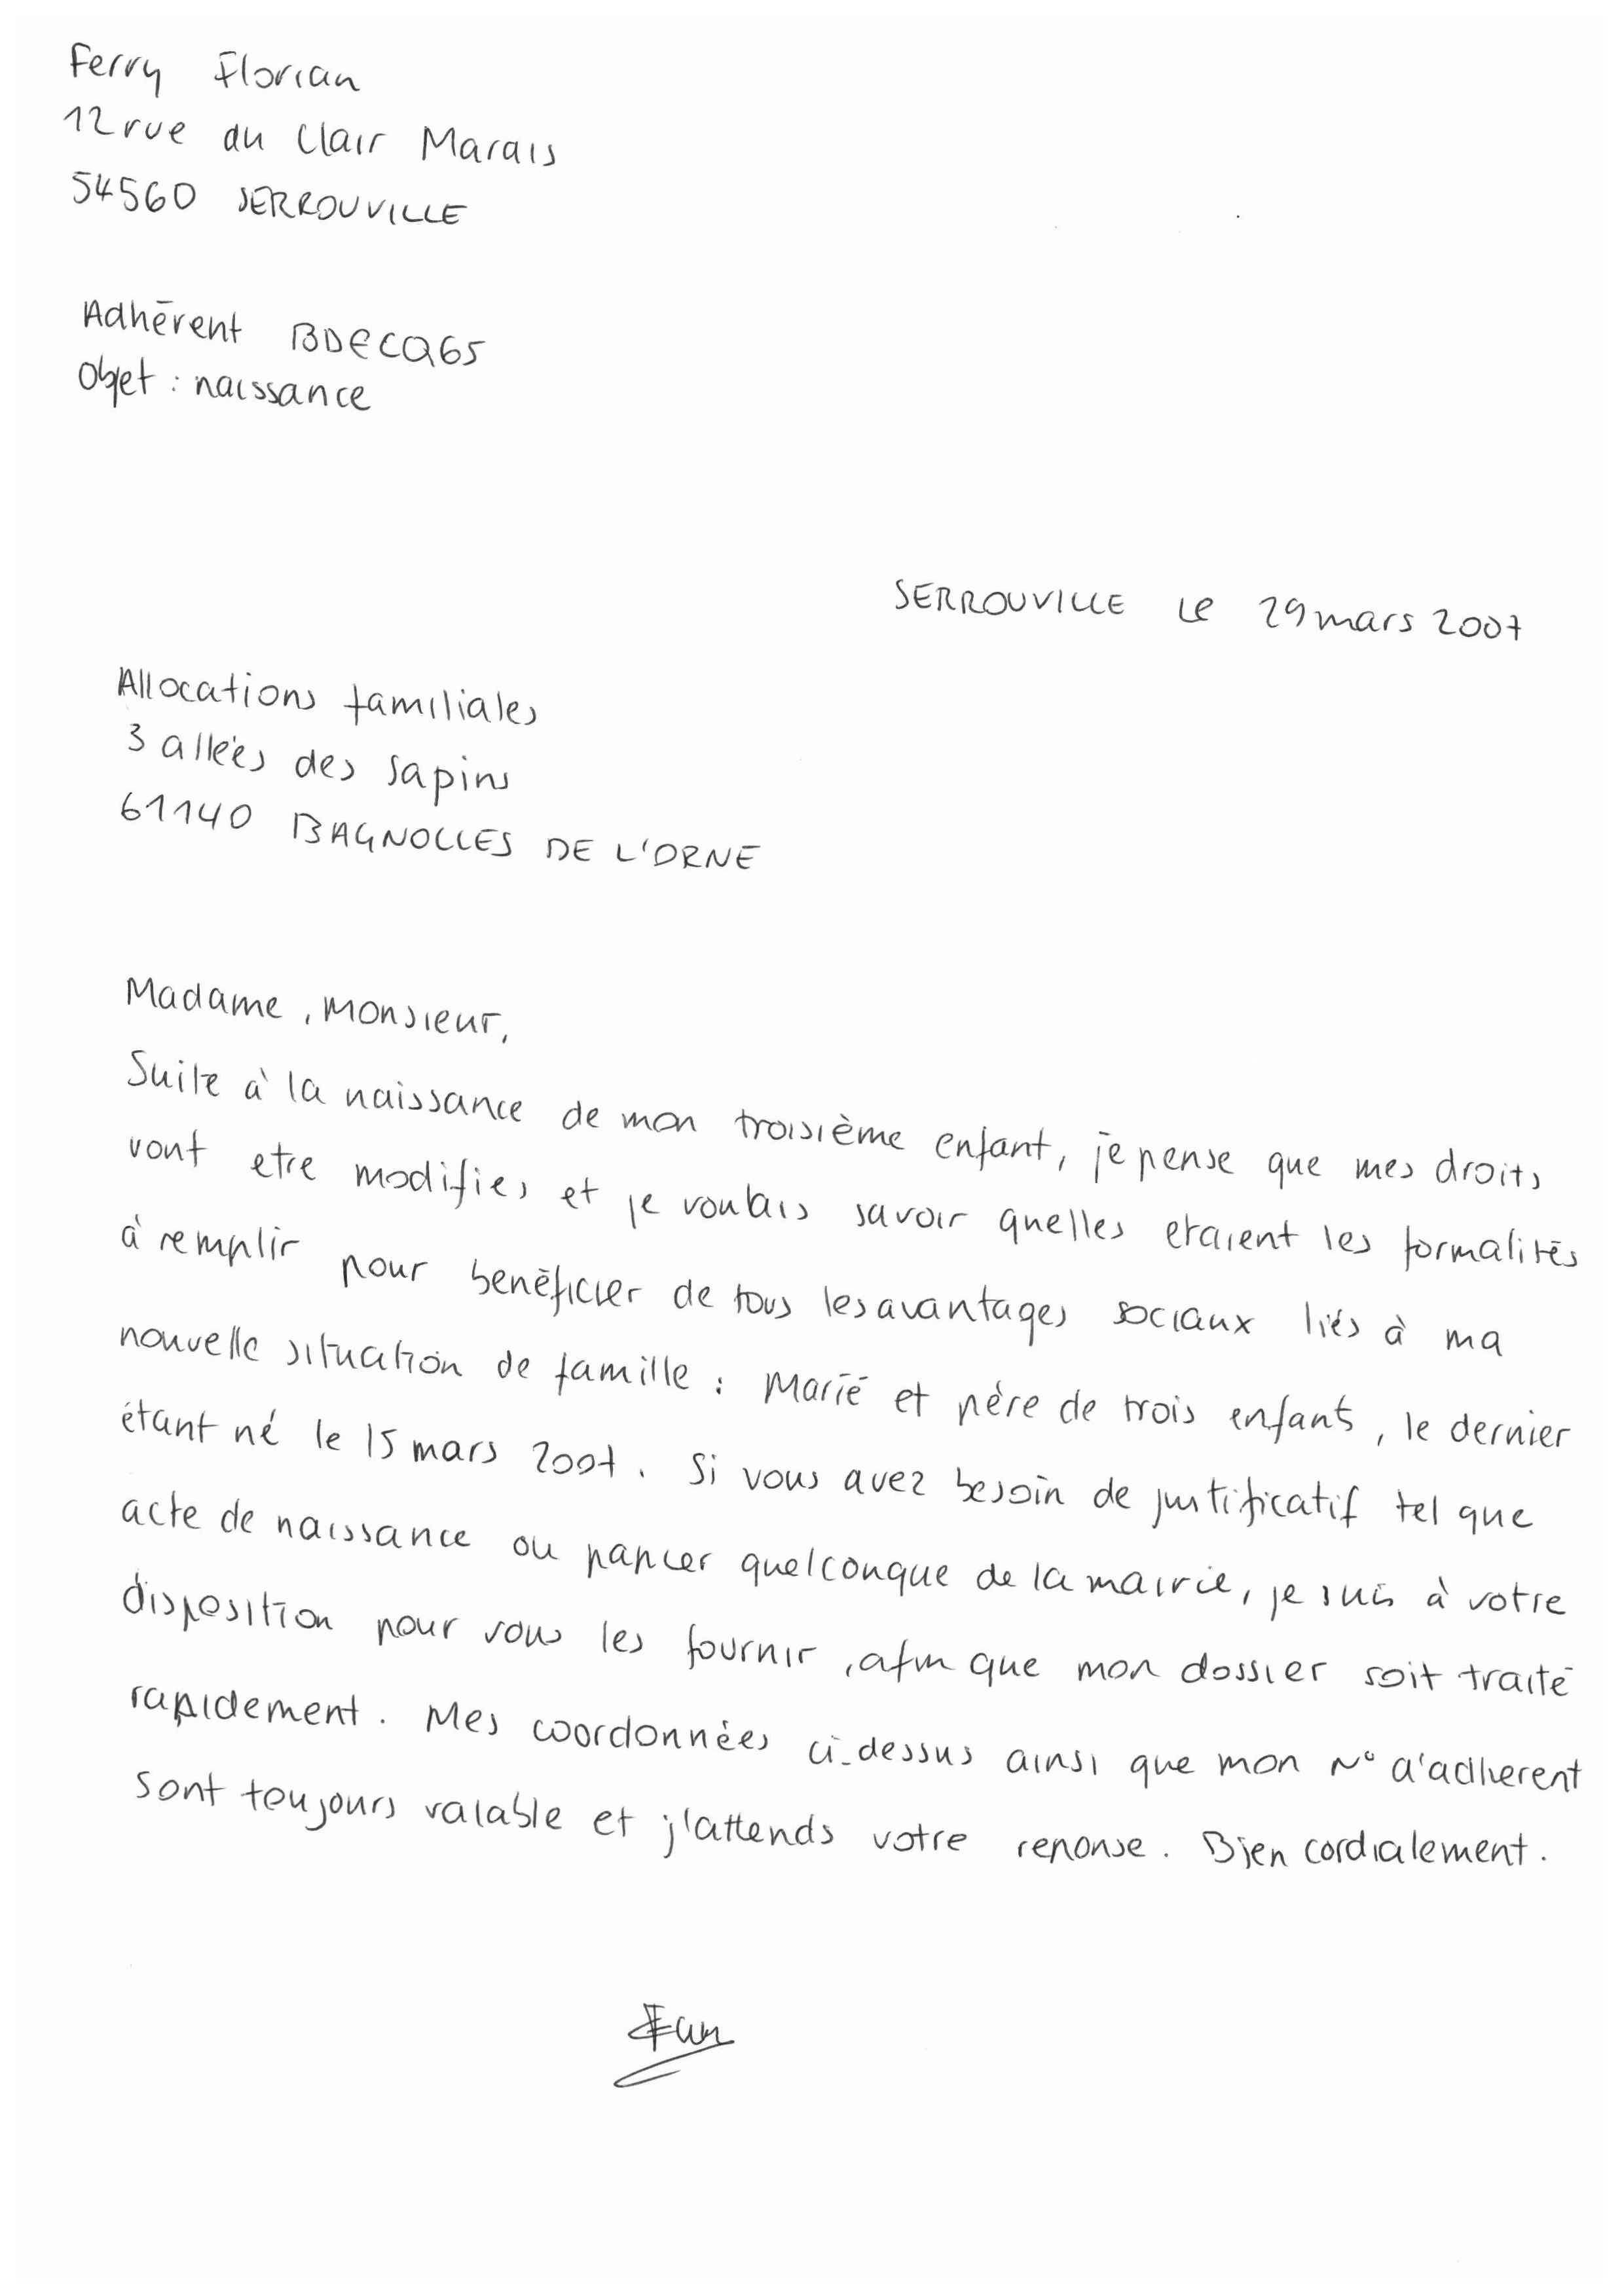 Ferry Florian
12 rue du Clair Marais
54560 SERROUVILLE
Adhérent BDECQ65
Objet : naissance
SERROUVILLE Le 29 mars 2007
Allocations familiales
3 allées des sapins
61140 BAGNOLLES DE L'ORNE
Madame, Monsieur,
Suite à la naissance de mon troisième enfant, je pense que mes droits
vont etre modifies et je voulais savoir quelles etaient les formalités
à remplir pour benéficier de tous les avantages sociaux liés à ma
nouvelle situation de famille : Marié et père de trois enfants, le dernier
étant né le 15 mars 2007. Si vous avez besoin de justificatif tel que
acte de naissance ou papier quelconque de la mairie, je suis à votre
disposition pour vous les fournir, afin que mon dossier soit traité
rapidement. Mes coordonnées ci-dessus ainsi que mon N° d'adherent
sont toujours valable et j'attends votre reponse. Bien cordialement.